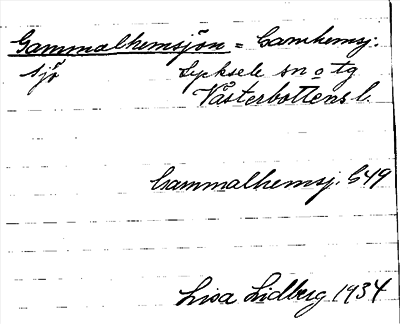 Gammalhemsjön = Gamhemsj.
sjö Lycksele sn o tg
Västerbottens l.
Gammalhemsj. G49
Lisa Lidberg 1934